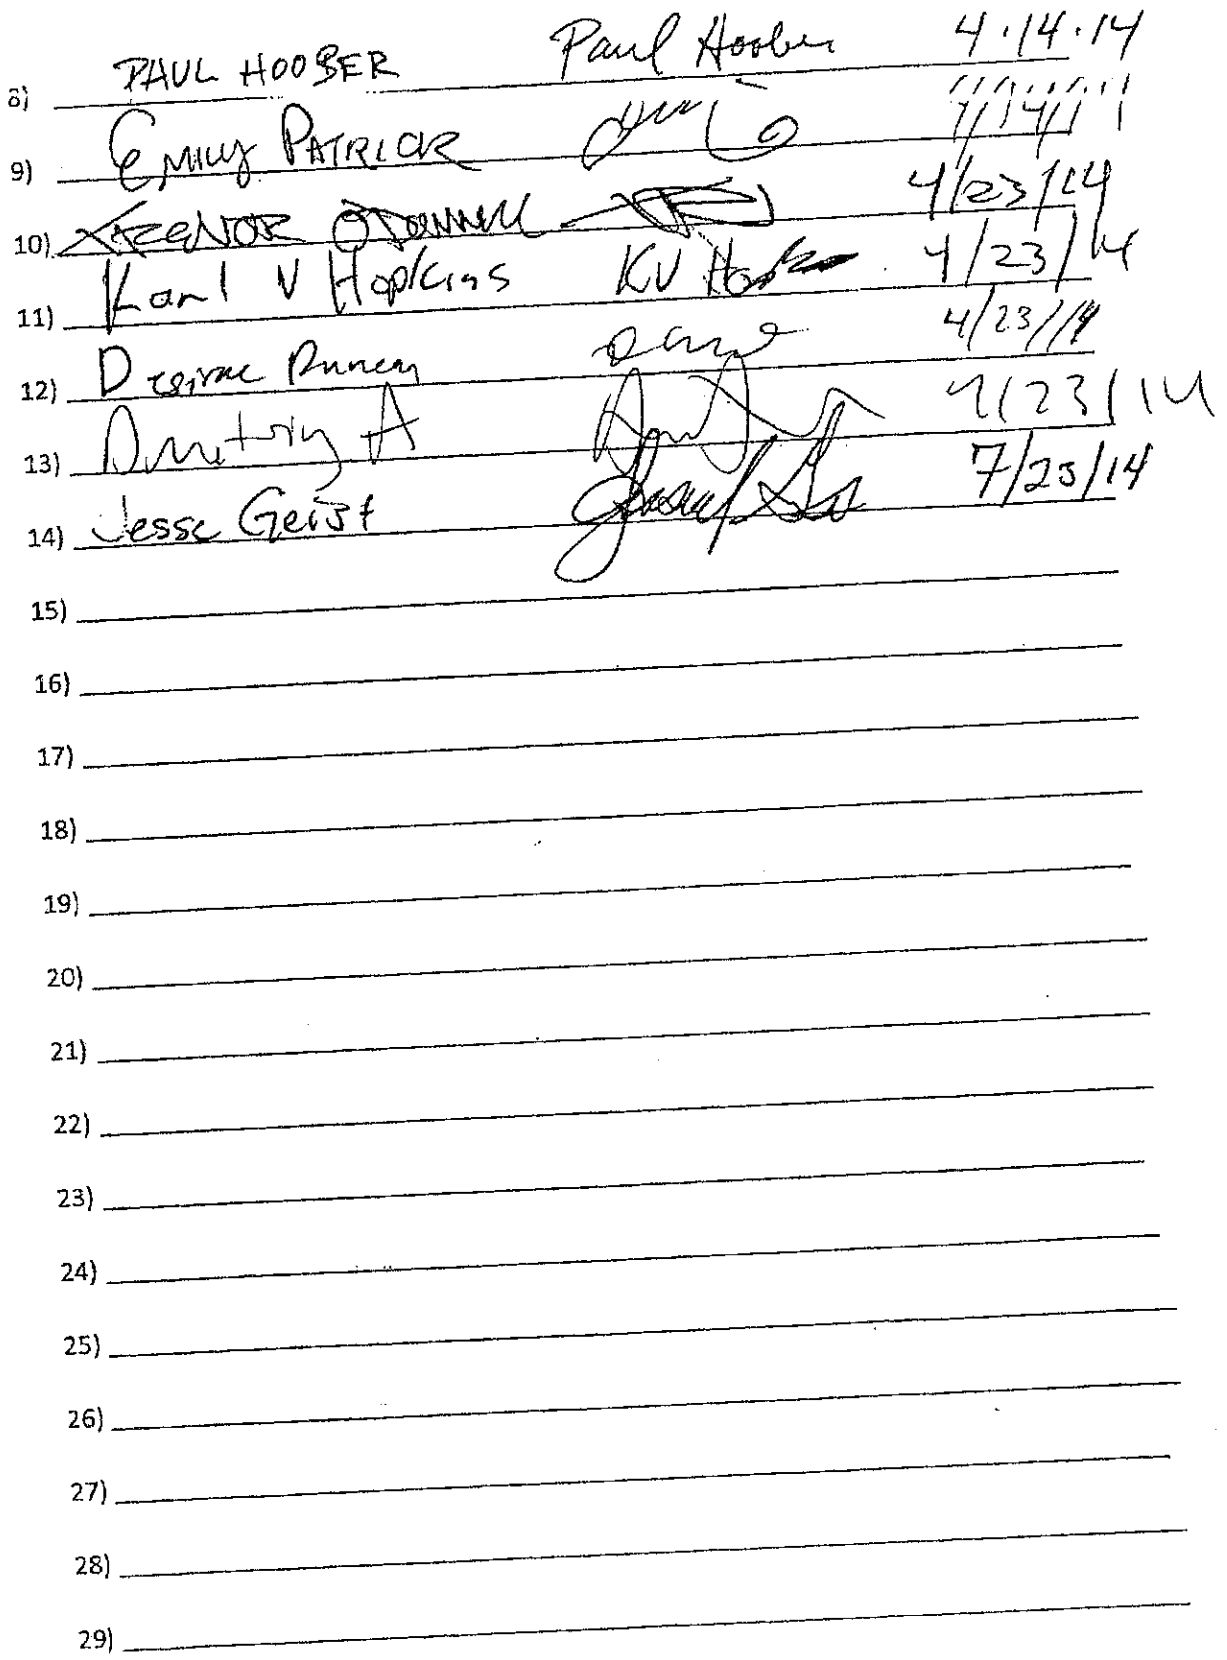 8) PAUL HOOBER Paul Hoober 4.14.14
9) EMILY PATRICK
10) TREVOR O'DONNELL 4/23/14
11) Karl V Hopkins KV Hop 4/23/14
12) Desirae Duncan 4/23/14
13) Dmitriy A 4/23/14
14) Jesse Geist 7/23/14
15)
16)
17)
18)
19)
20)
21)
22)
23)
24)
25)
26)
27)
28)
29)